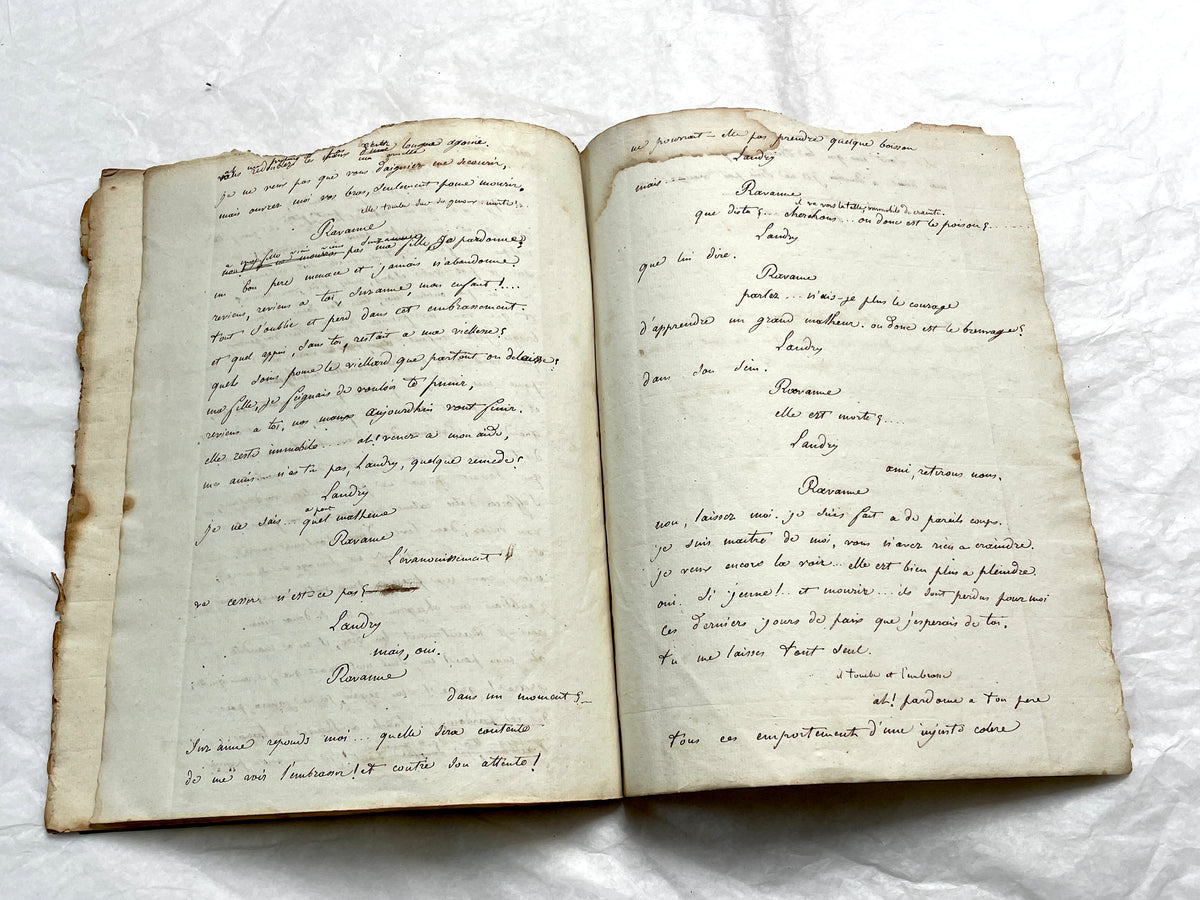 longue agonie.
je ne veux pas que vous daigniez me secourir,
mais ouvrez moi vos bras, seulement pour mourir.
elle tombe sur
Ravanne
pas ma fille, je pardonne;
un bon pere menace et jamais n'abandonne.
reviens, reviens a toi, Suzanne, mon enfant!....
tout s'oublie et perd dans cet embrassement.
et quel appui, sans toi, restait a ma viellesse?
quels soins pour le vieillard que partout on delaisse?
ma fille, je feignais de vouloir te punir,
reviens a toi, nos maux aujourdhui vont finir.
elle reste immobile..... ah! venez a mon aide,
mes amis.... n'as tu pas, Landry, quelque remede?
Landry
a part
je ne sais... quel malheur
Ravanne
L'évanouissement
va cesser n'est ce pas?
Landry
mais, oui.
Ravanne
dans un moment?
Suzanne reponds moi... quelle sera contente
de me voir l'embrasser! et contre son attente!
ne pourrait-elle pas prendre quelque boisson
Landry
mais...
Ravanne
il va vers la table, immobile de crainte.
que dis tu?... cherchons... ou donc est le poison?......
Landry
que lui dire.
Ravanne
parlez... n'ais-je plus le courage
d'apprendre un grand malheur. ou donc est le breuvage?
Landry
dans son sein.
Ravanne
elle est morte?....
Landry
ami, retirons nous.
Ravanne
non, laissez moi. je suis fait a de pareils coups.
je suis maitre de moi, vous n'avez rien a craindre.
je veux encore la voir... elle est bien plus a pleindre.
oui. si jeune!.. et mourir... ils sont perdus pour moi
ces derniers jours de paix que j'esperais de toi.
tu me laisses tout seul.
il tombe et l'embrasse
ah! pardonne a ton pere
tous ces emportement d'une injuste colere